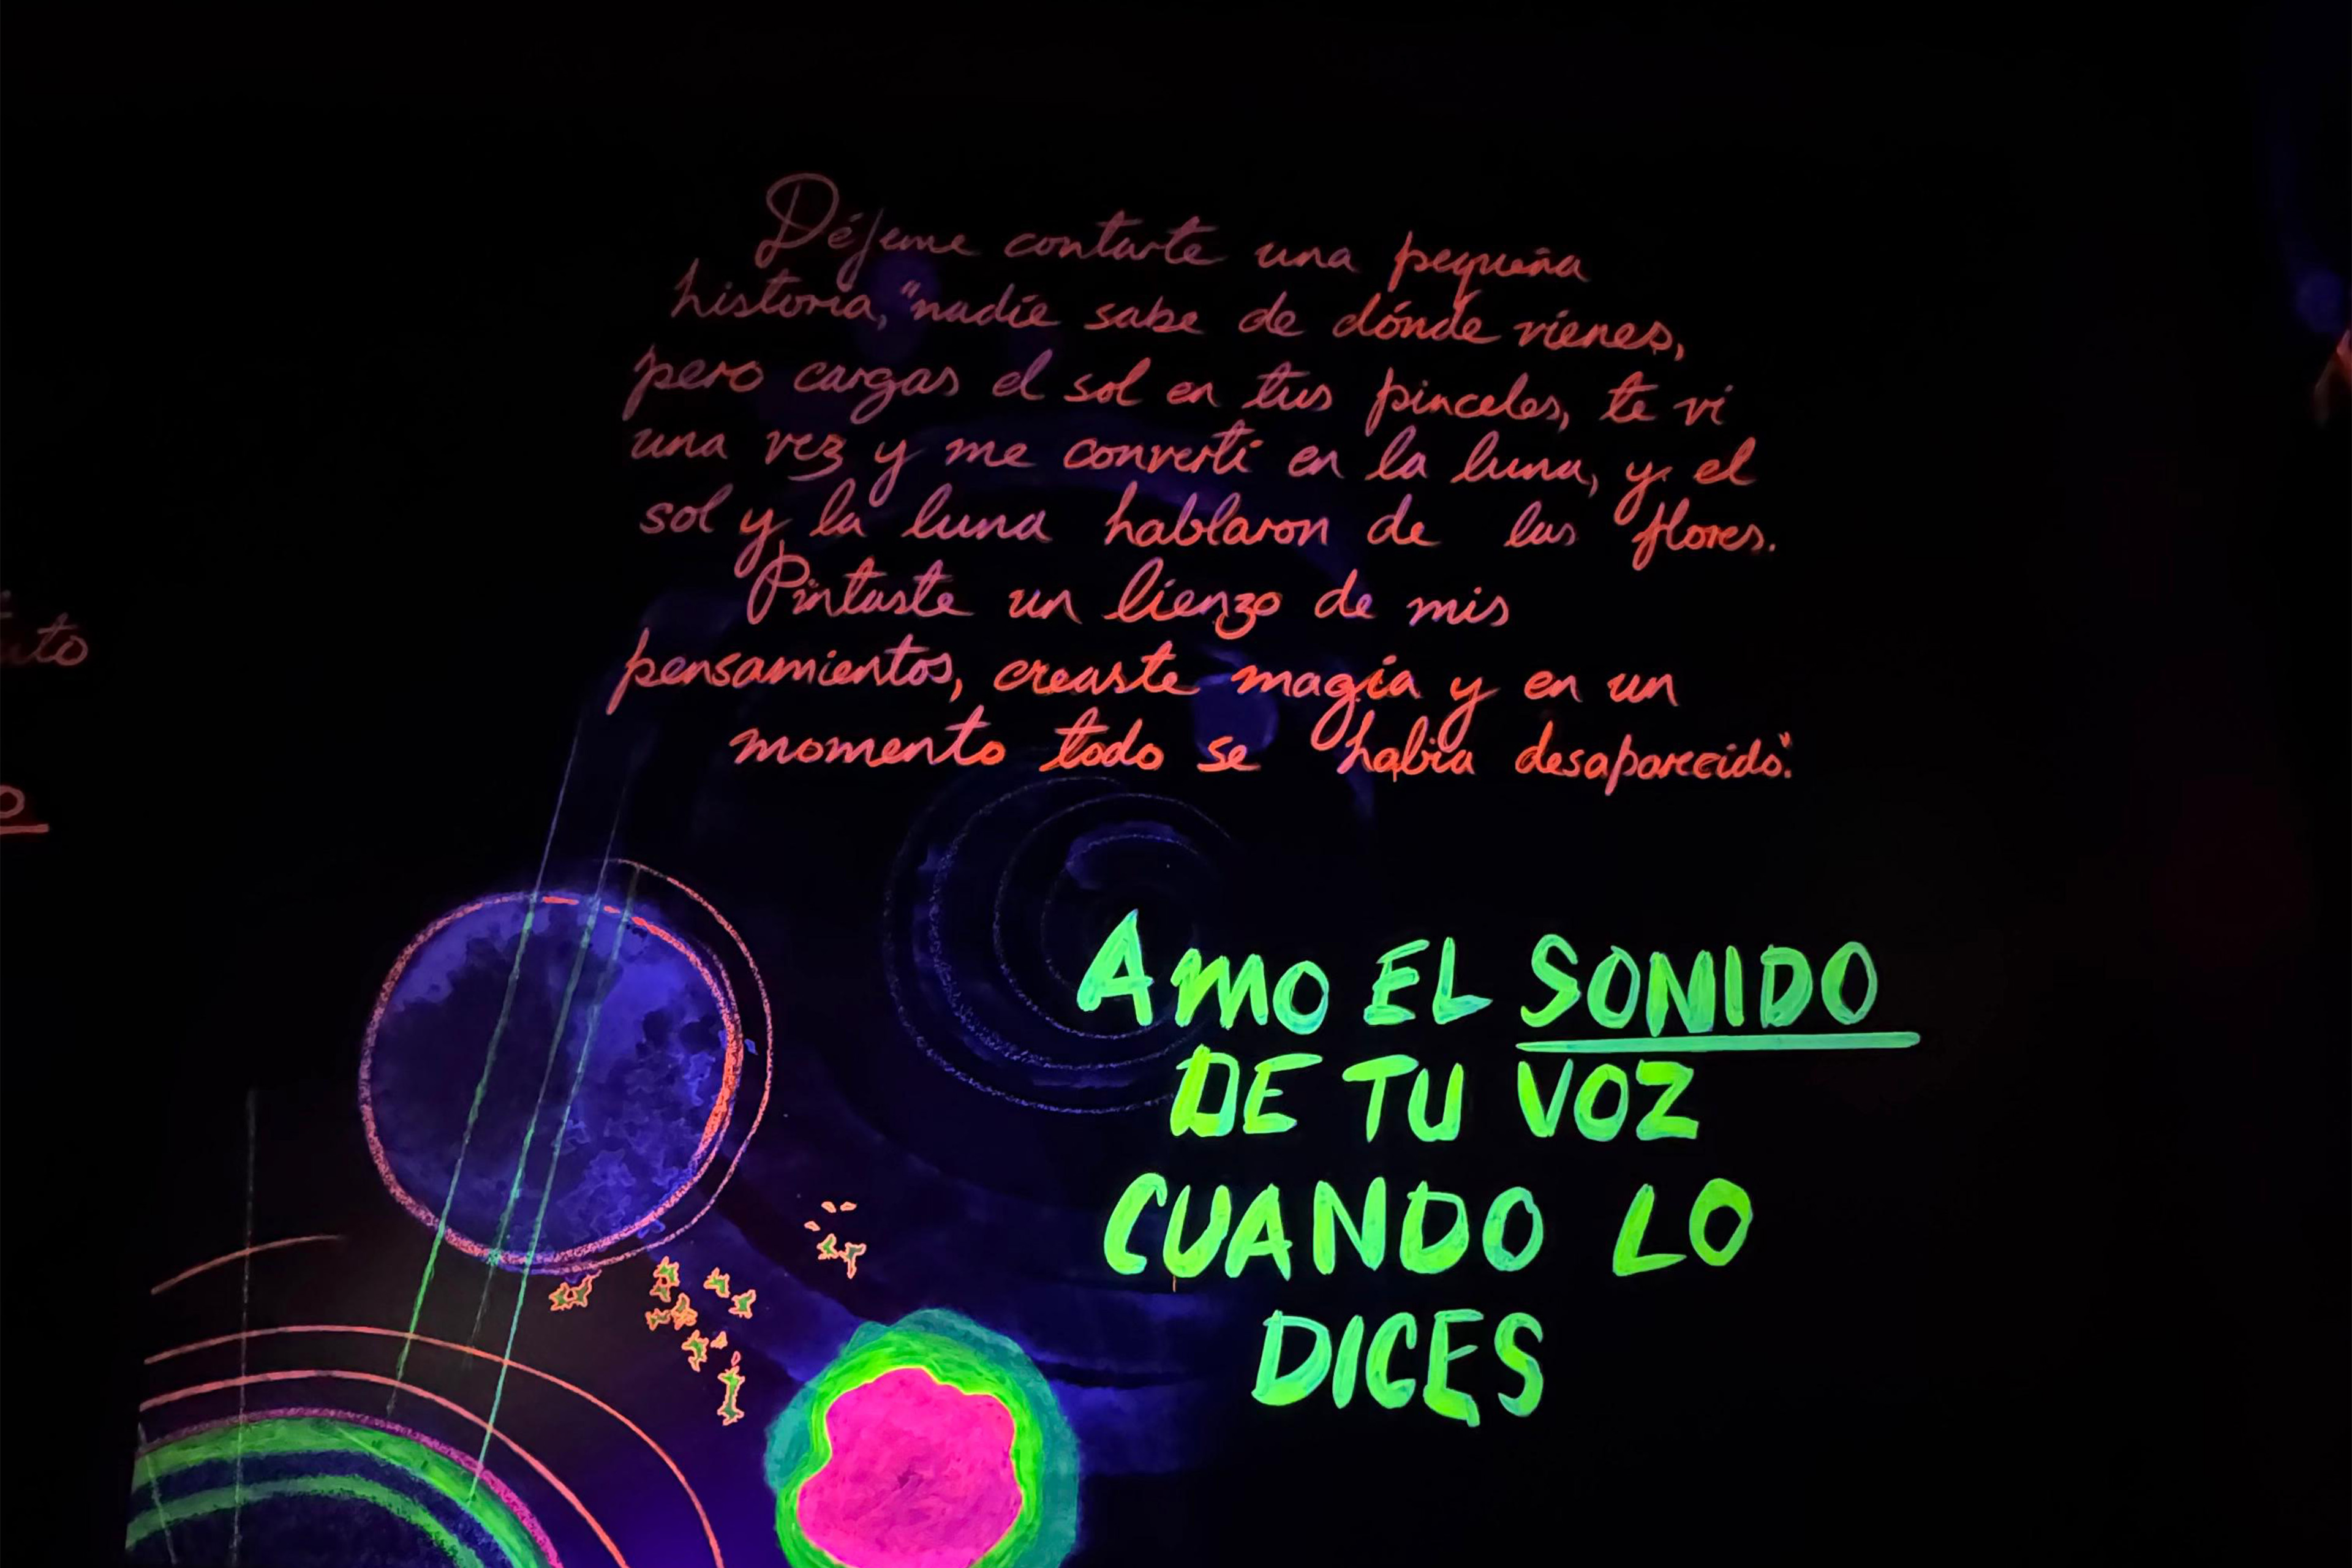 Déjeme contarte una pequeña
historia, "nadie sabe de dónde vienes,
pero cargas el sol en tus pinceles, te vi
una vez y me convertí en la luna, y el
sol y la luna hablaron de las flores.
Pintaste un lienzo de mis
pensamientos, creaste magia y en un
momento todo se había desaparecido".
AMO EL SONIDO
DE TU VOZ
CUANDO LO
DICES